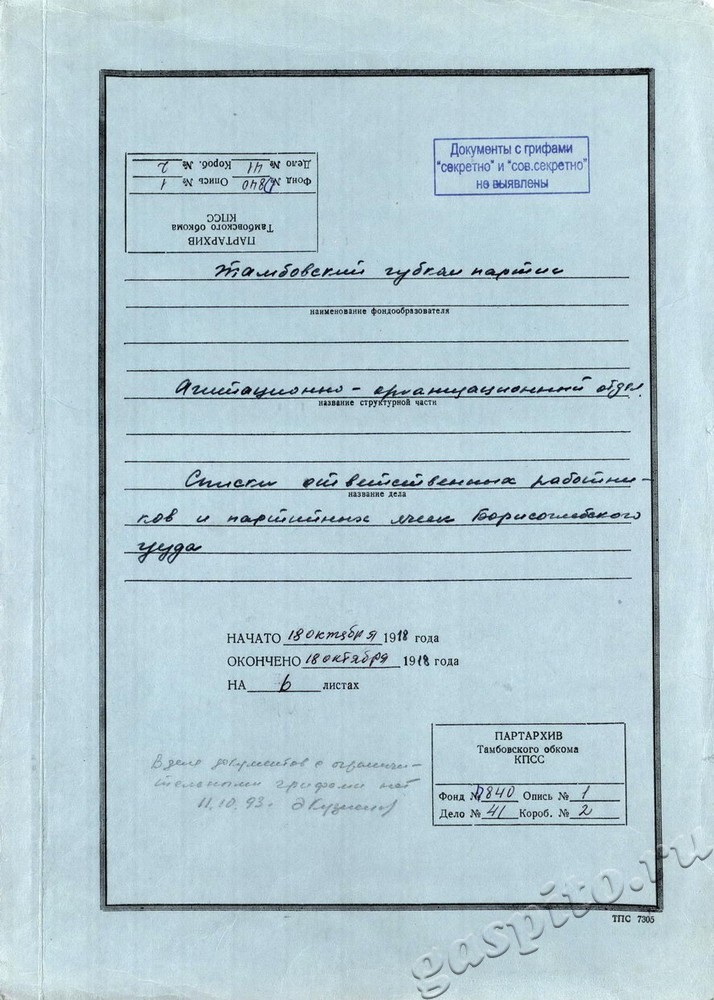 Документы с грифами
"секретно" и "сов.секретно"
не выявлены
ПАРТАРХИВ
Тамбовского обкома
КПСС
Фонд № П840 Опись № 1
Дело № 41 Короб. № 2
Тамбовский губком партии
наименование фондообразователя
Агитационно-организационный отдел
название структурной части
Списки ответственных работни-
название дела
ков и партийных ячеек Борисоглебского
уезда
НАЧАТО 18 октября 1918 года
ОКОНЧЕНО 18 октября 1918 года
НА 6 листах
В деле документов с ограничи-
тельными грифами нет
11.10.93г.
ПАРТАРХИВ
Тамбовского обкома
КПСС
Фонд № П840 Опись № 1
Дело № 41 Короб. № 2
ТПС 7305
gaspito.ru